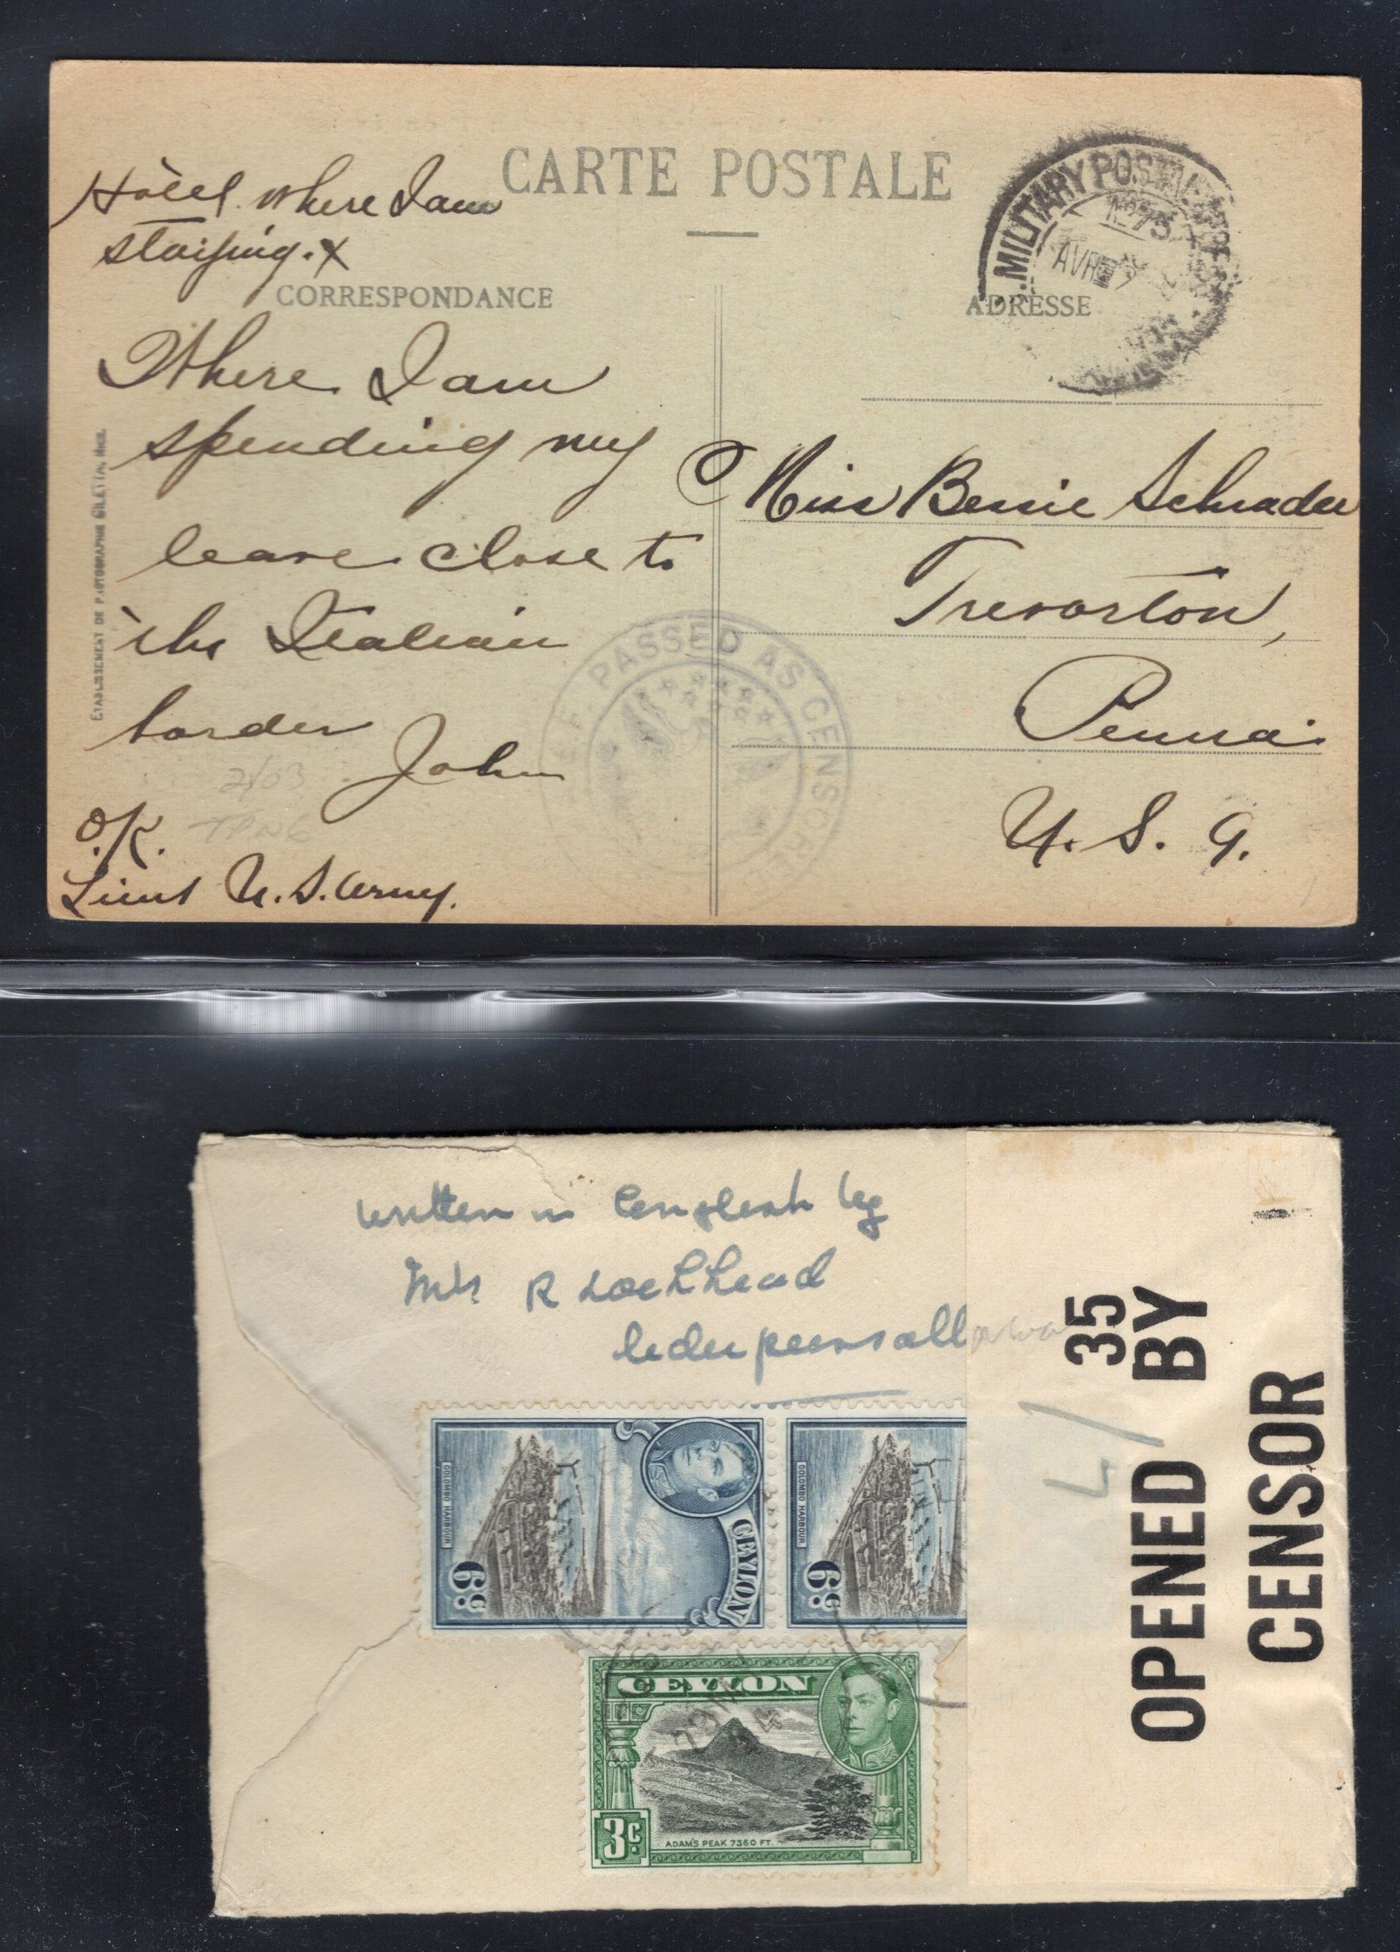 CARTE POSTALE
Hotel where I am
staying. X
CORRESPONDANCE
ADRESSE
MILITARY POSTAL
No 73
AVR
Where I am
spending my
leave close to
the Italian
border
John
O.K.
Lieut U.S. Army.
2/03
ETABLISSEMENT DE PHOTOGRAPHIE GILETTA, NICE.
Miss Bessie Schrader
Trevorton,
Penna.
U.S.A.
PASSED AS CENSORED
written in English by
Mrs R Lochhead
35
OPENED BY
CENSOR
COLOMBO HARBOUR
6c
CEYLON
COLOMBO HARBOUR
6c
CEYLON
3c
ADAM'S PEAK 7360 FT.